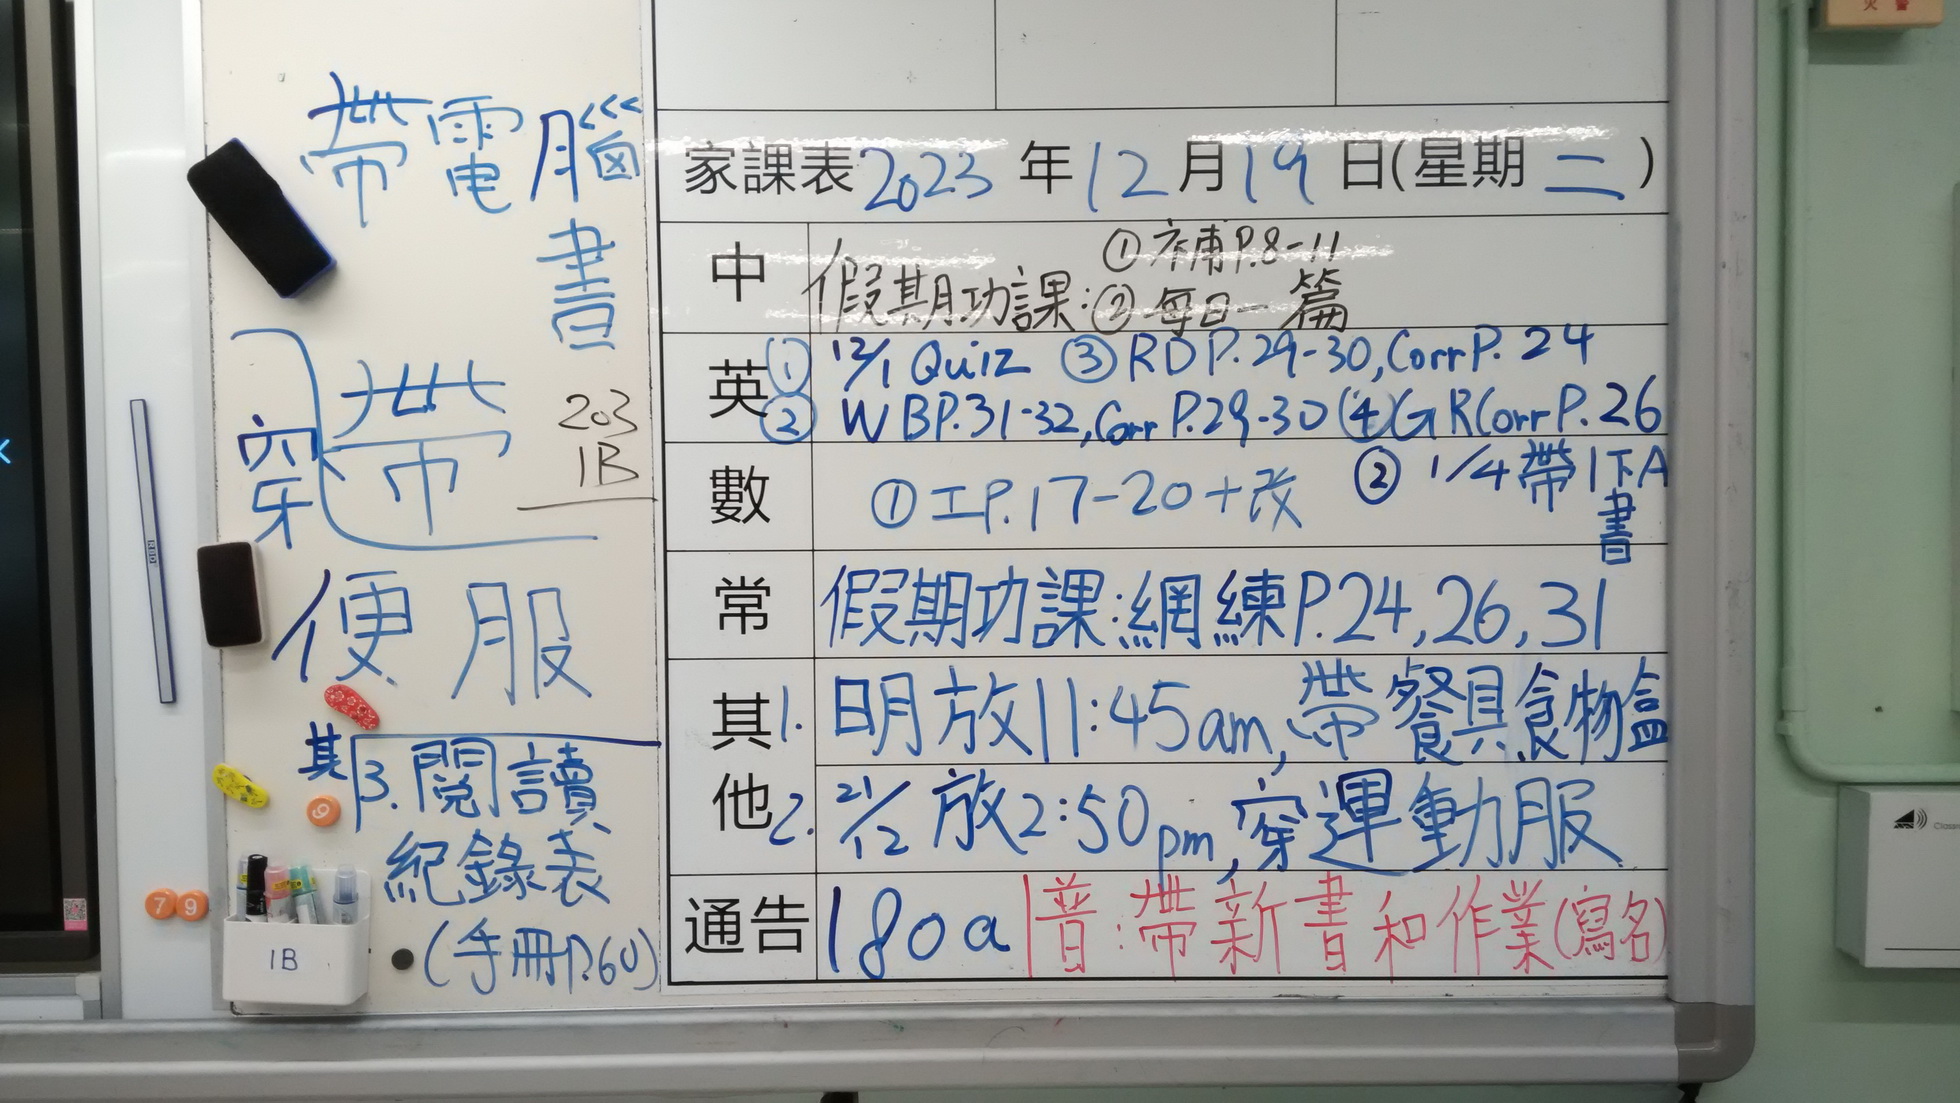 帶電腦
書
穿帶
便服
203
1B
其
3. 閱讀
紀錄表
(手冊P.60)
1B
7
9
6
家課表2023年12月19日(星期二)
中
假期功課:
① 補P.8-11
② 每日一篇
英
① 12/1 Quiz ③ RD P.29-30, Corr P. 24
② WB P.31-32, Corr P.29-30 ④ GR Corr P.26
數
① 工P.17-20+改
② 1/4 帶1下A
書
常
假期功課:網練P.24, 26, 31
其他
1. 明放11:45am, 帶餐具食物盒
2. 21/12 放2:50pm, 穿運動服
通告
180a
普:帶新書和作業(寫名)
火警